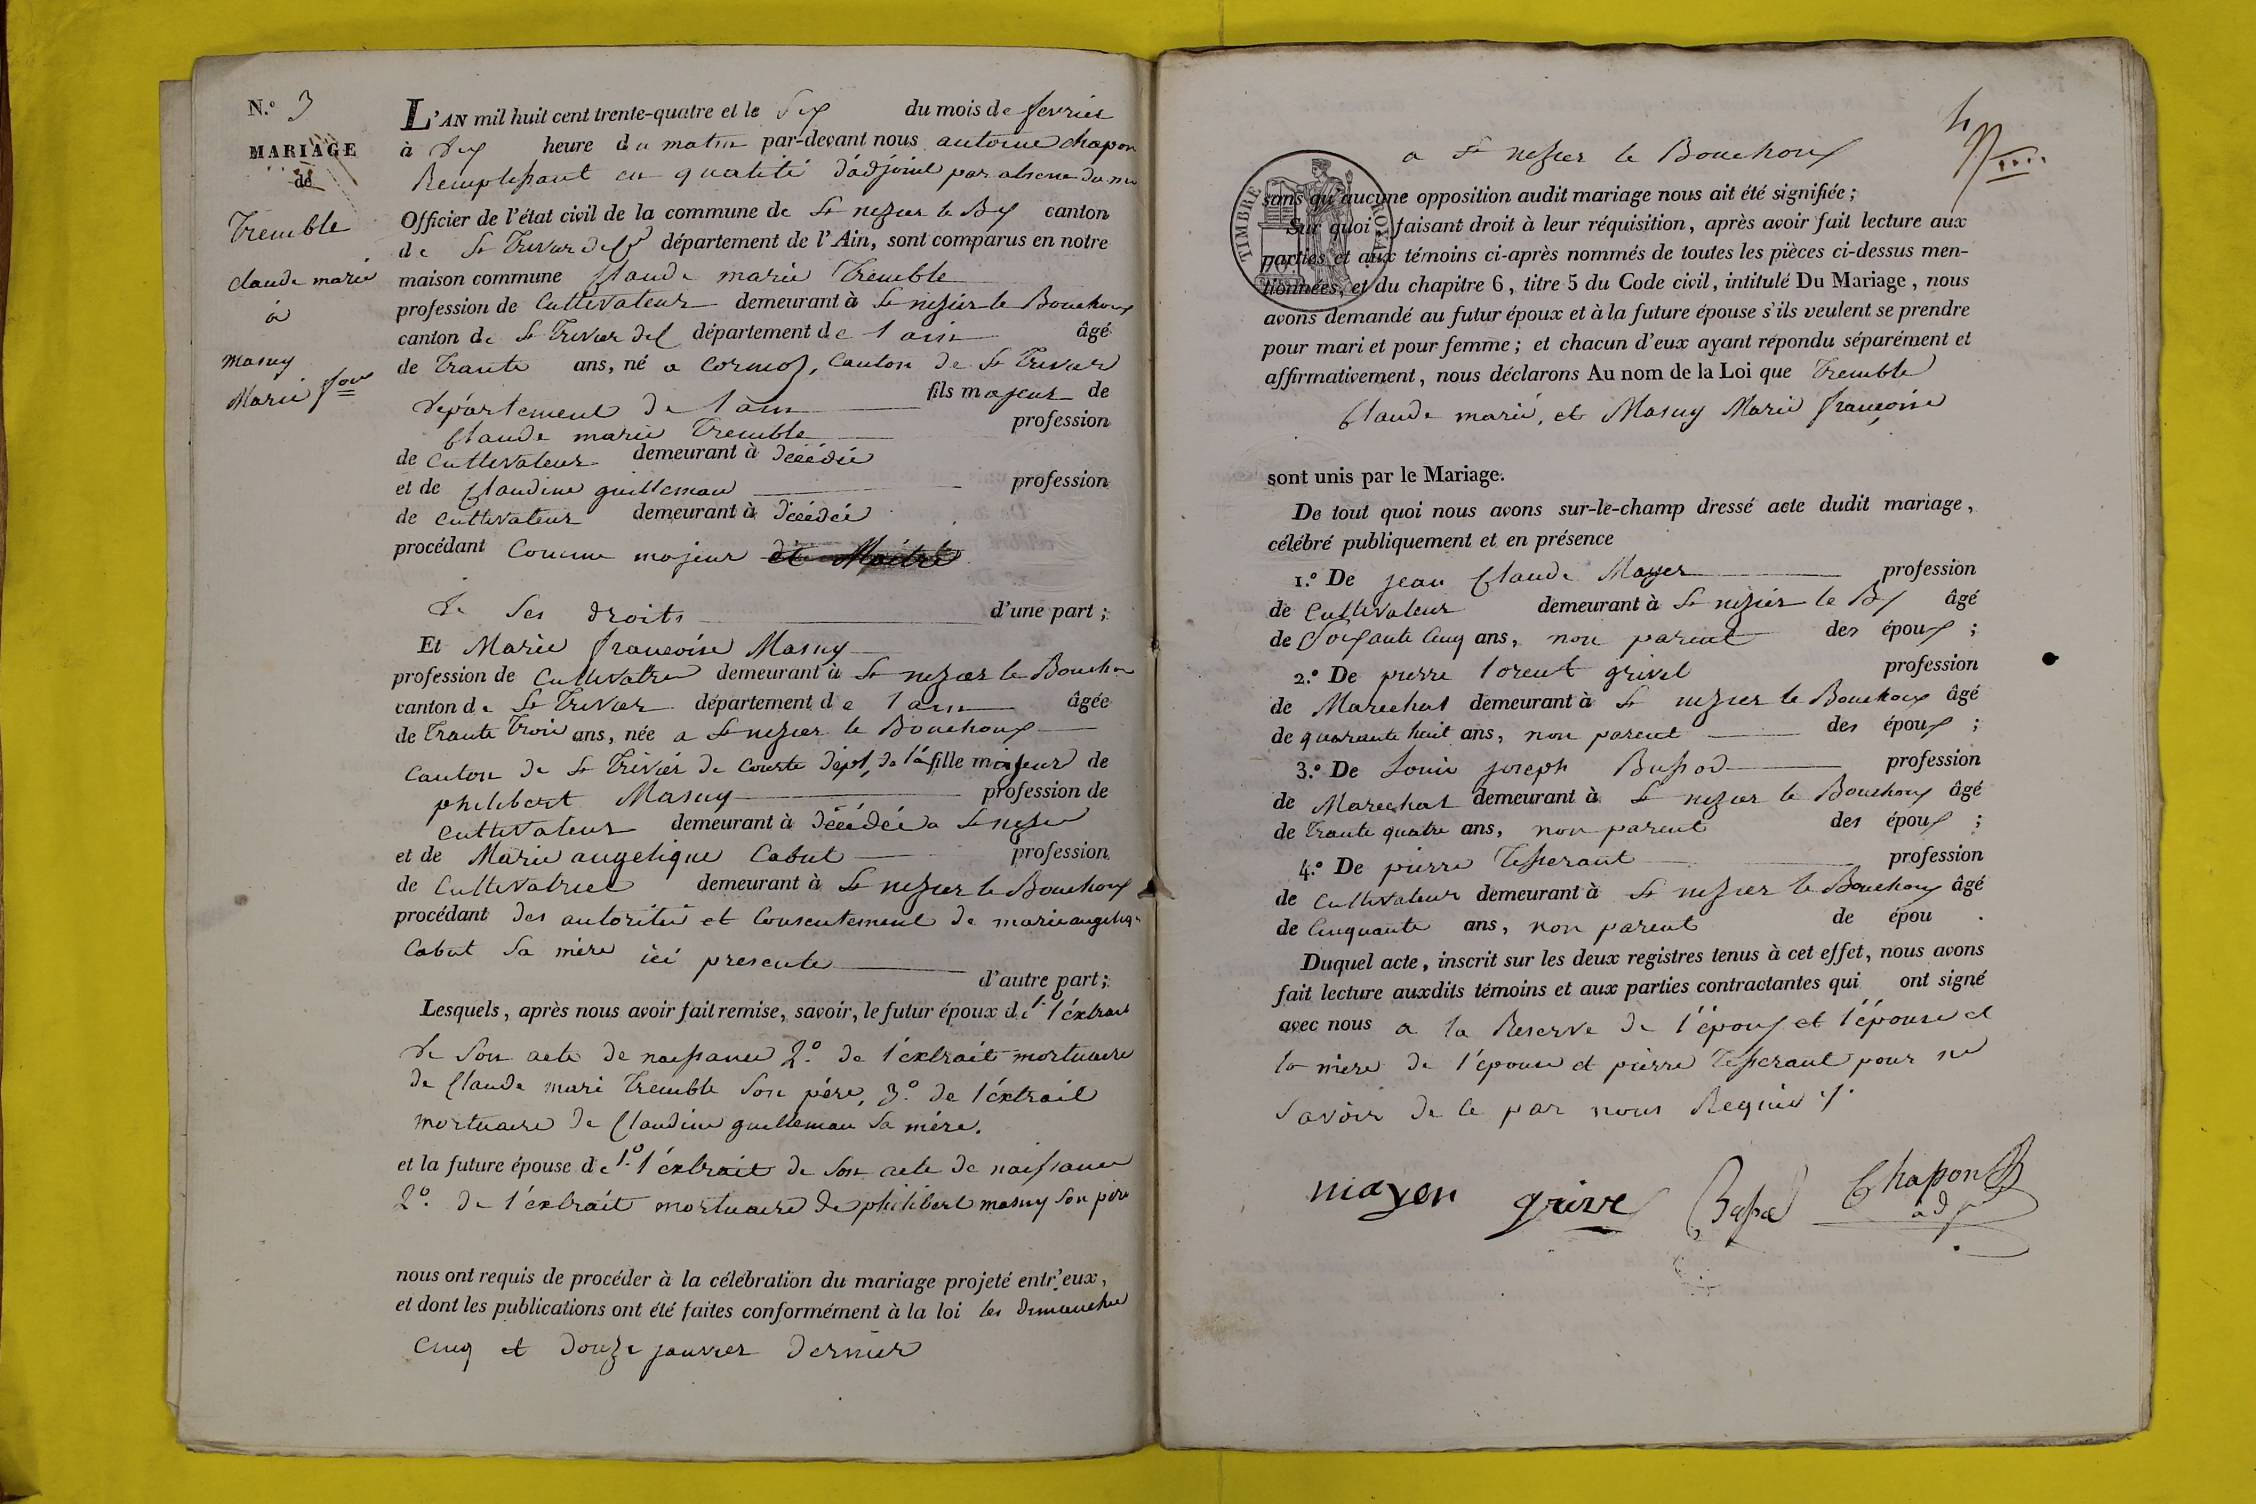 N.° 3
MARIAGE
de
Tremble
claude marie
à
masuy
Marie f.oise
L'AN mil huit cent trente-quatre et le Six du mois de fevrier
à dix heure du matin par-devant nous antoine chapon
Remplissant en qualité d'adjoint par absence du
Officier de l'état civil de la commune de St nizier le Bx canton
de St Trivier de département de l'Ain, sont comparus en notre
maison commune Claude marie Tremble
profession de Cultivateur demeurant à St nizier le Bouchoux
canton de St Trivier de C département de l ain âgé
de Trante ans, né a Cormoz, Canton de St Trivier
departement de l ain fils majeur de
Claude marie Tremble profession
de Cultivateur demeurant à décédé
et de Claudine guilleman profession
de cultivateur demeurant à décédée
procédant Comme majeur et Maitre
de Ses droits d'une part ;
Et Marie françoise Masuy
profession de Cultivatrice demeurant à St nizier le Bouchou
canton de St Trivier département de l ain âgée
de Trante Trois ans, née a St nizier le Bouchoux
Canton de St Trivier de Courte dépt, de l'a fille majeur de
philibert Masuy profession de
cultivateur demeurant à décédé a St nizier
et de Marie angelique Cabut profession
de Cultivatrice demeurant à St nizier le Bouchoux
procédant des autorité et Consentement de marie angeliq
Cabut Sa mère ici presente d'autre part ;
Lesquels, après nous avoir fait remise, savoir, le futur époux de 1.° l'éxtrait
de Son acte de naissance 2.° de l'éxtrait mortuaire
de Claude mari Tremble Son père, 3.° de l'éxtrait
mortuaire de Claudine guilleman Sa mére.
et la future épouse de 1.° l'éxtrait de Son acte de naissance
2.° de l'éxtrait mortuaire de philibert masuy Son père
nous ont requis de procéder à la célébration du mariage projeté entr'eux,
et dont les publications ont été faites conformément à la loi les dimanches
Cinq et douze janvier dernier
4
a St nizier le Bouchoux
TIMBRE ROYAL
sans qu'aucune opposition audit mariage nous ait été signifiée ;
Sur quoi faisant droit à leur réquisition, après avoir fait lecture aux
parties et aux témoins ci-après nommés de toutes les pièces ci-dessus men-
tionnées, et du chapitre 6, titre 5 du Code civil, intitulé Du Mariage, nous
avons demandé au futur époux et à la future épouse s'ils veulent se prendre
pour mari et pour femme ; et chacun d'eux ayant répondu séparément et
affirmativement, nous déclarons Au nom de la Loi que Tremble
Claude marie, et Masuy Marie françoise
sont unis par le Mariage.
De tout quoi nous avons sur-le-champ dressé acte dudit mariage,
célébré publiquement et en présence
1.° De jean Claude Mayer profession
de Cultivateur demeurant à St nizier le Bx âgé
de Soixante Cinq ans, non parent des époux ;
2.° De pierre lorent grivel profession
de Marechal demeurant à St nizier le Bouchoux âgé
de quarante huit ans, non parent des époux ;
3.° De Louis joseph Bussod profession
de Marechal demeurant à St nizier le Bouchoux âgé
de Trante quatre ans, non parent des époux ;
4.° De pierre Tisserant profession
de Cultivateur demeurant à St nizier le Bouchoux âgé
de Cinquante ans, non parent de épou .
Duquel acte, inscrit sur les deux registres tenus à cet effet, nous avons
fait lecture auxdits témoins et aux parties contractantes qui ont signé
avec nous a la Reserve de l'époux et l'épouse et
la mère de l'épouse et pierre Tisserant pour ne
Savoir de ce par nous Requis
mayer grivel Chapon
adj